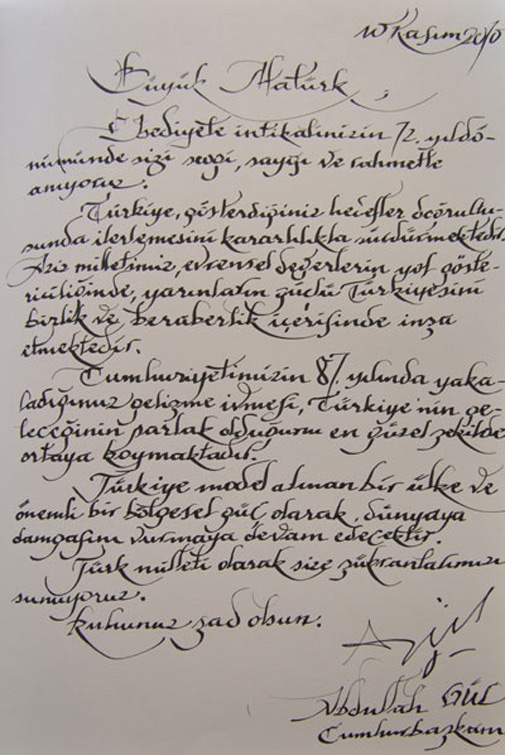 10 Kasım 2010
Büyük Atatürk,
Ebediyete intikalinizin 72. yıldö-
nümünde sizi sevgi, saygı ve rahmetle
anıyoruz.
Türkiye, gösterdiğiniz hedefler doğrultu-
sunda ilerlemesini kararlılıkla sürdürmektedir.
Aziz milletimiz, evrensel değerlerin yol göste-
riciliğinde, yarınların güçlü Türkiyesini
birlik ve beraberlik içerisinde inşa
etmektedir.
Cumhuriyetimizin 87. yılında yaka-
ladığımız gelişme ivmesi, Türkiye'nin ge-
leceğinin parlak olduğunu en güzel şekilde
ortaya koymaktadır.
Türkiye model alınan bir ülke ve
önemli bir bölgesel güç olarak, dünyaya
damgasını vurmaya devam edecektir.
Türk milleti olarak size şükranlarımızı
sunuyoruz.
Ruhunuz şad olsun.
Abdullah GÜL
Cumhurbaşkanı